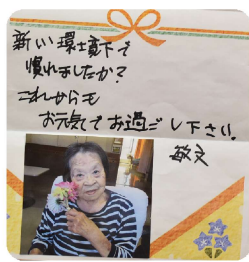 新しい環境下で
慣れましたか?
これからも
お元気でお過ごし下さい。
敬文